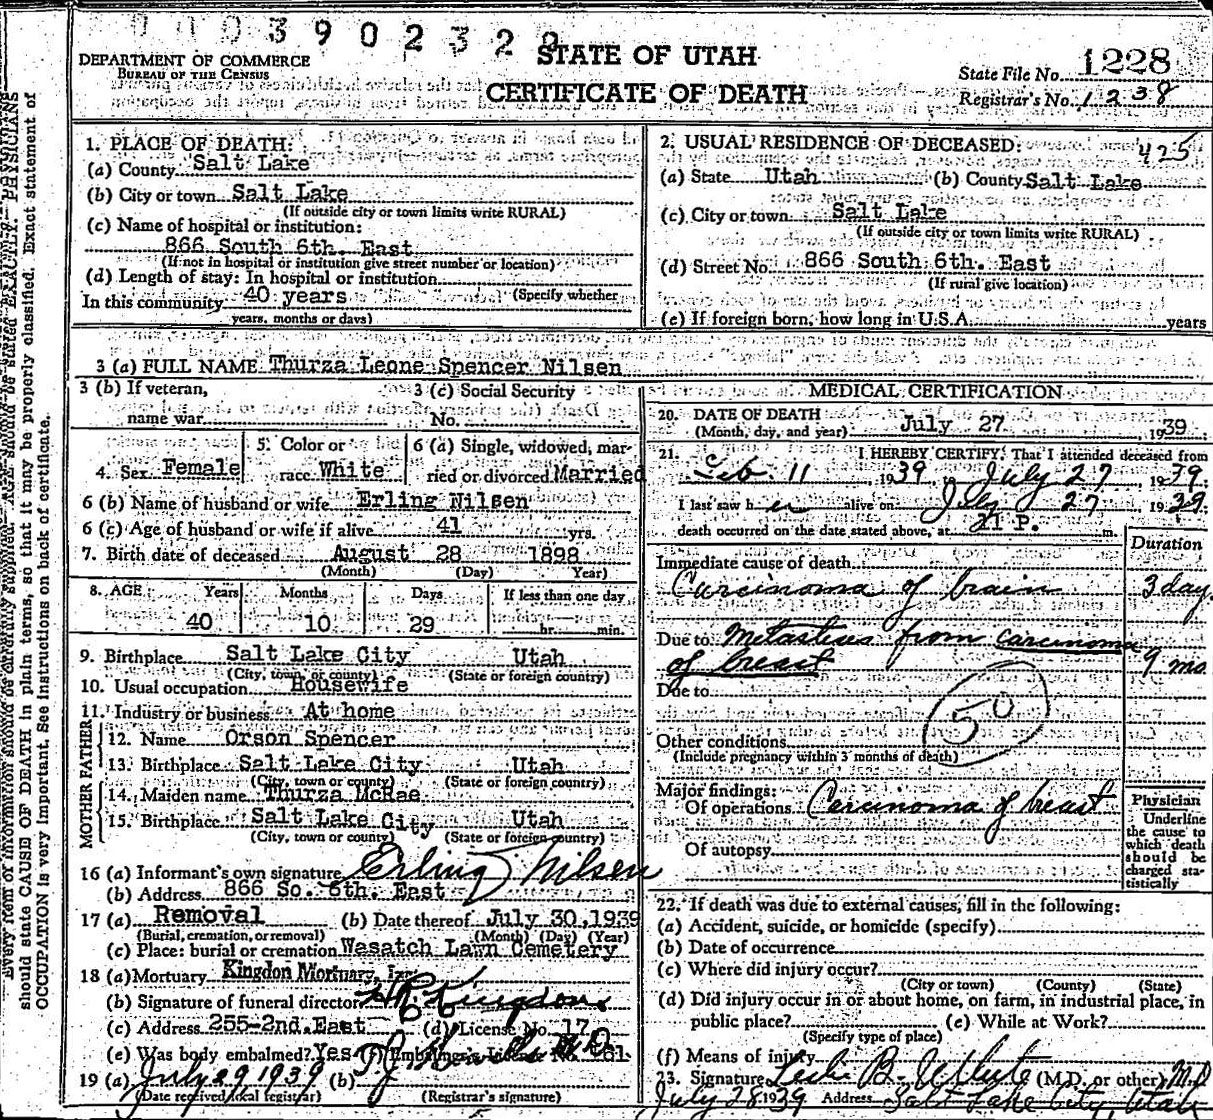 0003902329
STATE OF UTAH
CERTIFICATE OF DEATH
DEPARTMENT OF COMMERCE
BUREAU OF THE CENSUS
State File No. 1228
Registrar's No. 1238
Every item of information should be carefully supplied. AGE should be stated EXACTLY. PHYSICIANS
should state CAUSE OF DEATH in plain terms, so that it may be properly classified. Exact statement of
OCCUPATION is very important. See instructions on back of certificate.
1. PLACE OF DEATH:
(a) County Salt Lake
(b) City or town Salt Lake
(If outside city or town limits write RURAL)
(c) Name of hospital or institution:
866 South 6th. East
(If not in hospital or institution give street number or location)
(d) Length of stay: In hospital or institution
In this community 40 years (Specify whether
years, months or days)
2. USUAL RESIDENCE OF DECEASED: 425
(a) State Utah (b) County Salt Lake
(c) City or town Salt Lake
(If outside city or town limits write RURAL)
(d) Street No. 866 South 6th. East
(If rural give location)
(e) If foreign born, how long in U.S.A. years
3 (a) FULL NAME Thurza Leone Spencer Nilsen
3 (b) If veteran, 3 (c) Social Security
name war No.
4. Sex Female 5. Color or race White 6 (a) Single, widowed, married or divorced Married
6 (b) Name of husband or wife Erling Nilsen
6 (c) Age of husband or wife if alive 41 yrs.
7. Birth date of deceased August 28 1898
(Month) (Day) Year)
8. AGE Years Months Days If less than one day
40 10 29 hr. min.
9. Birthplace Salt Lake City Utah
(City, town, or county) (State or foreign country)
10. Usual occupation Housewife
11. Industry or business At home
MOTHER FATHER
12. Name Orson Spencer
13. Birthplace Salt Lake City Utah
(City, town or county) (State or foreign country)
14. Maiden name Thurza McRae
15. Birthplace Salt Lake City Utah
(City, town or county) (State or foreign country)
16 (a) Informant's own signature Erling Nilsen
(b) Address 866 So. 6th. East
17 (a) Removal (b) Date thereof July 30, 1939
(Burial, cremation, or removal) (Month) (Day) (Year)
(c) Place: burial or cremation Wasatch Lawn Cemetery
18 (a) Mortuary Kingdon Mortuary, Inc
(b) Signature of funeral director
(c) Address 255-2nd. East (d) License No. 17
(e) Was body embalmed? Yes (f) Embalmer's License No.
19 (a) July 29 1939 (b)
(Date received local registrar) (Registrar's signature)
MEDICAL CERTIFICATION
20. DATE OF DEATH
(Month, day, and year) July 27, 1939
21. I HEREBY CERTIFY, That I attended deceased from
Feb. 11, 1939, to July 27, 1939;
I last saw her alive on July 27, 1939;
death occurred on the date stated above, at P. m.
Duration
Immediate cause of death
Carcinoma of brain 3 days
Due to Metastises from carcinoma
of breast 9 mo
Due to
50
Other conditions
(Include pregnancy within 3 months of death)
Major findings:
Of operations Carcinoma of breast
Of autopsy
Physician
Underline
the cause to
which death
should be
charged sta-
tistically
22. If death was due to external causes, fill in the following:
(a) Accident, suicide, or homicide (specify)
(b) Date of occurrence
(c) Where did injury occur?
(City or town) (County) (State)
(d) Did injury occur in or about home, on farm, in industrial place, in
public place? (e) While at Work?
(Specify type of place)
(f) Means of injury
23. Signature Leslie B. White (M.D. or other) M.D.
July 28 1939 Address Salt Lake City, Utah